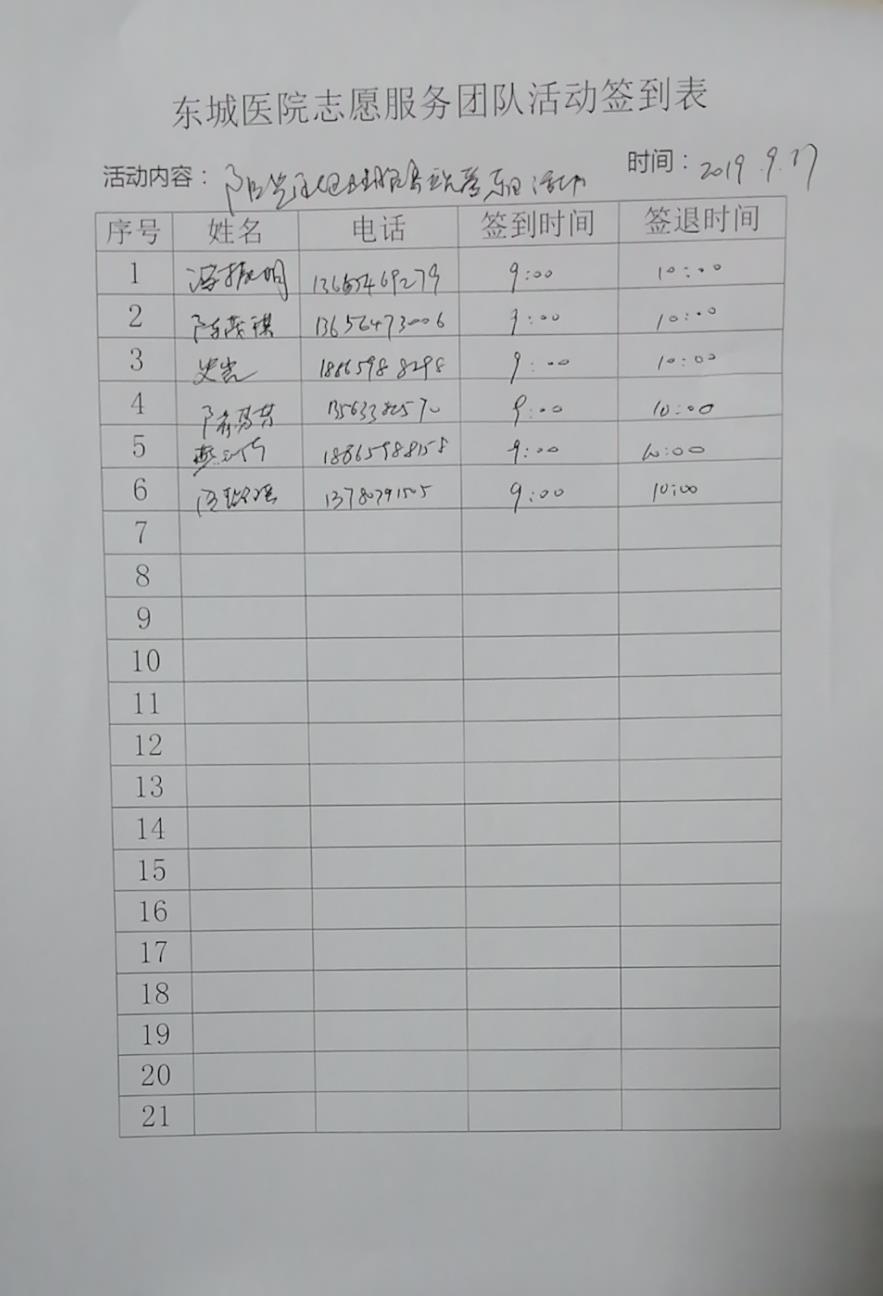 东城医院志愿服务团队活动签到表
活动内容： 时间：2019.9.17
序号 姓名 电话 签到时间 签退时间
1 9:00 10:00
2 13656473006 9:00 10:00
3 史光 18865988298 9:00 10:00
4 13563382570 9:00 10:00
5 18865988158 9:00 10:00
6 13780791505 9:00 10:00
7
8
9
10
11
12
13
14
15
16
17
18
19
20
21